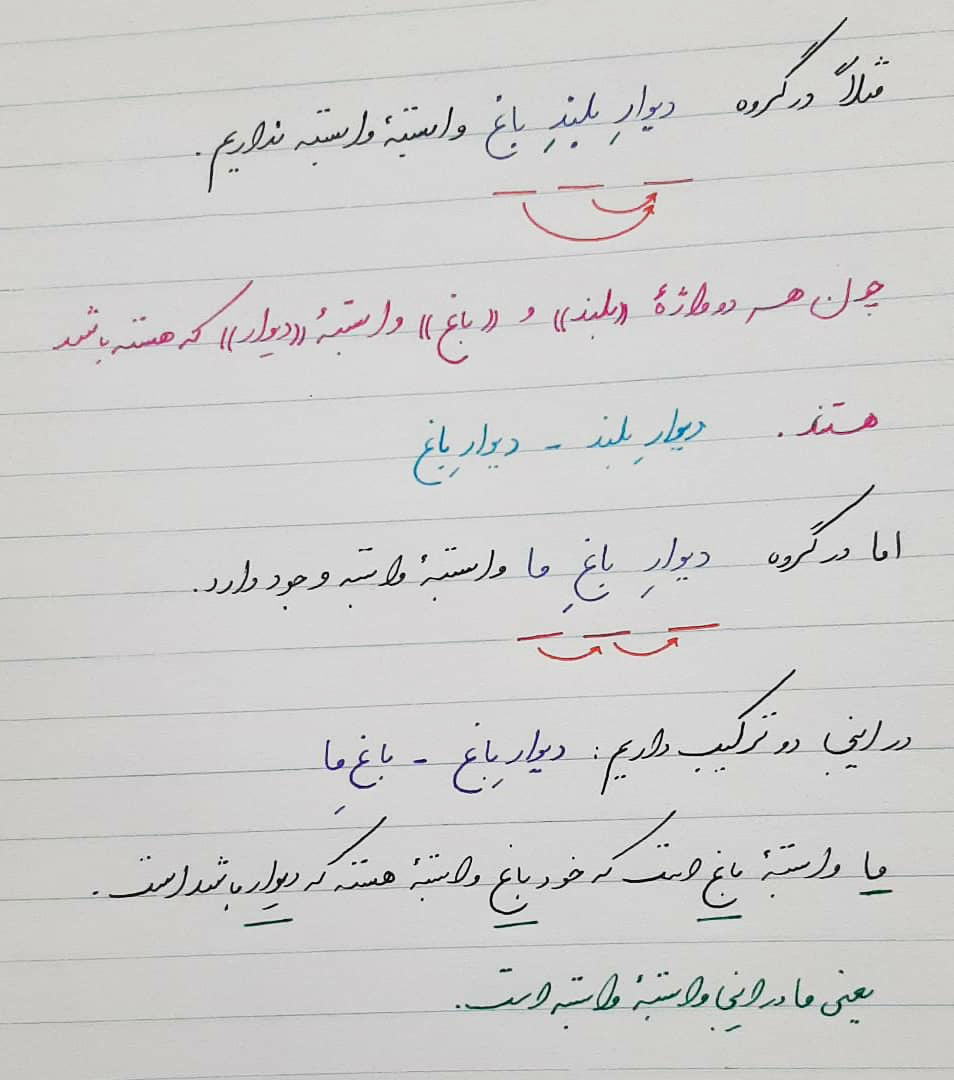 مثلاً در گروه دیوارِ بلندِ باغ وابستهٔ وابسته نداریم.
چون هر دو واژهٔ «بلند» و «باغ» وابستهٔ «دیوار» که هسته باشد
هستند. دیوارِ بلند - دیوارِ باغ
اما در گروه دیوارِ باغِ ما وابستهٔ وابسته وجود دارد.
در اینجا دو ترکیب داریم: دیوارِ باغ - باغِ ما
ما وابستهٔ باغ است که خود باغ وابستهٔ هسته که دیوار باشد است.
یعنی ما در اینجا وابستهٔ وابسته است.